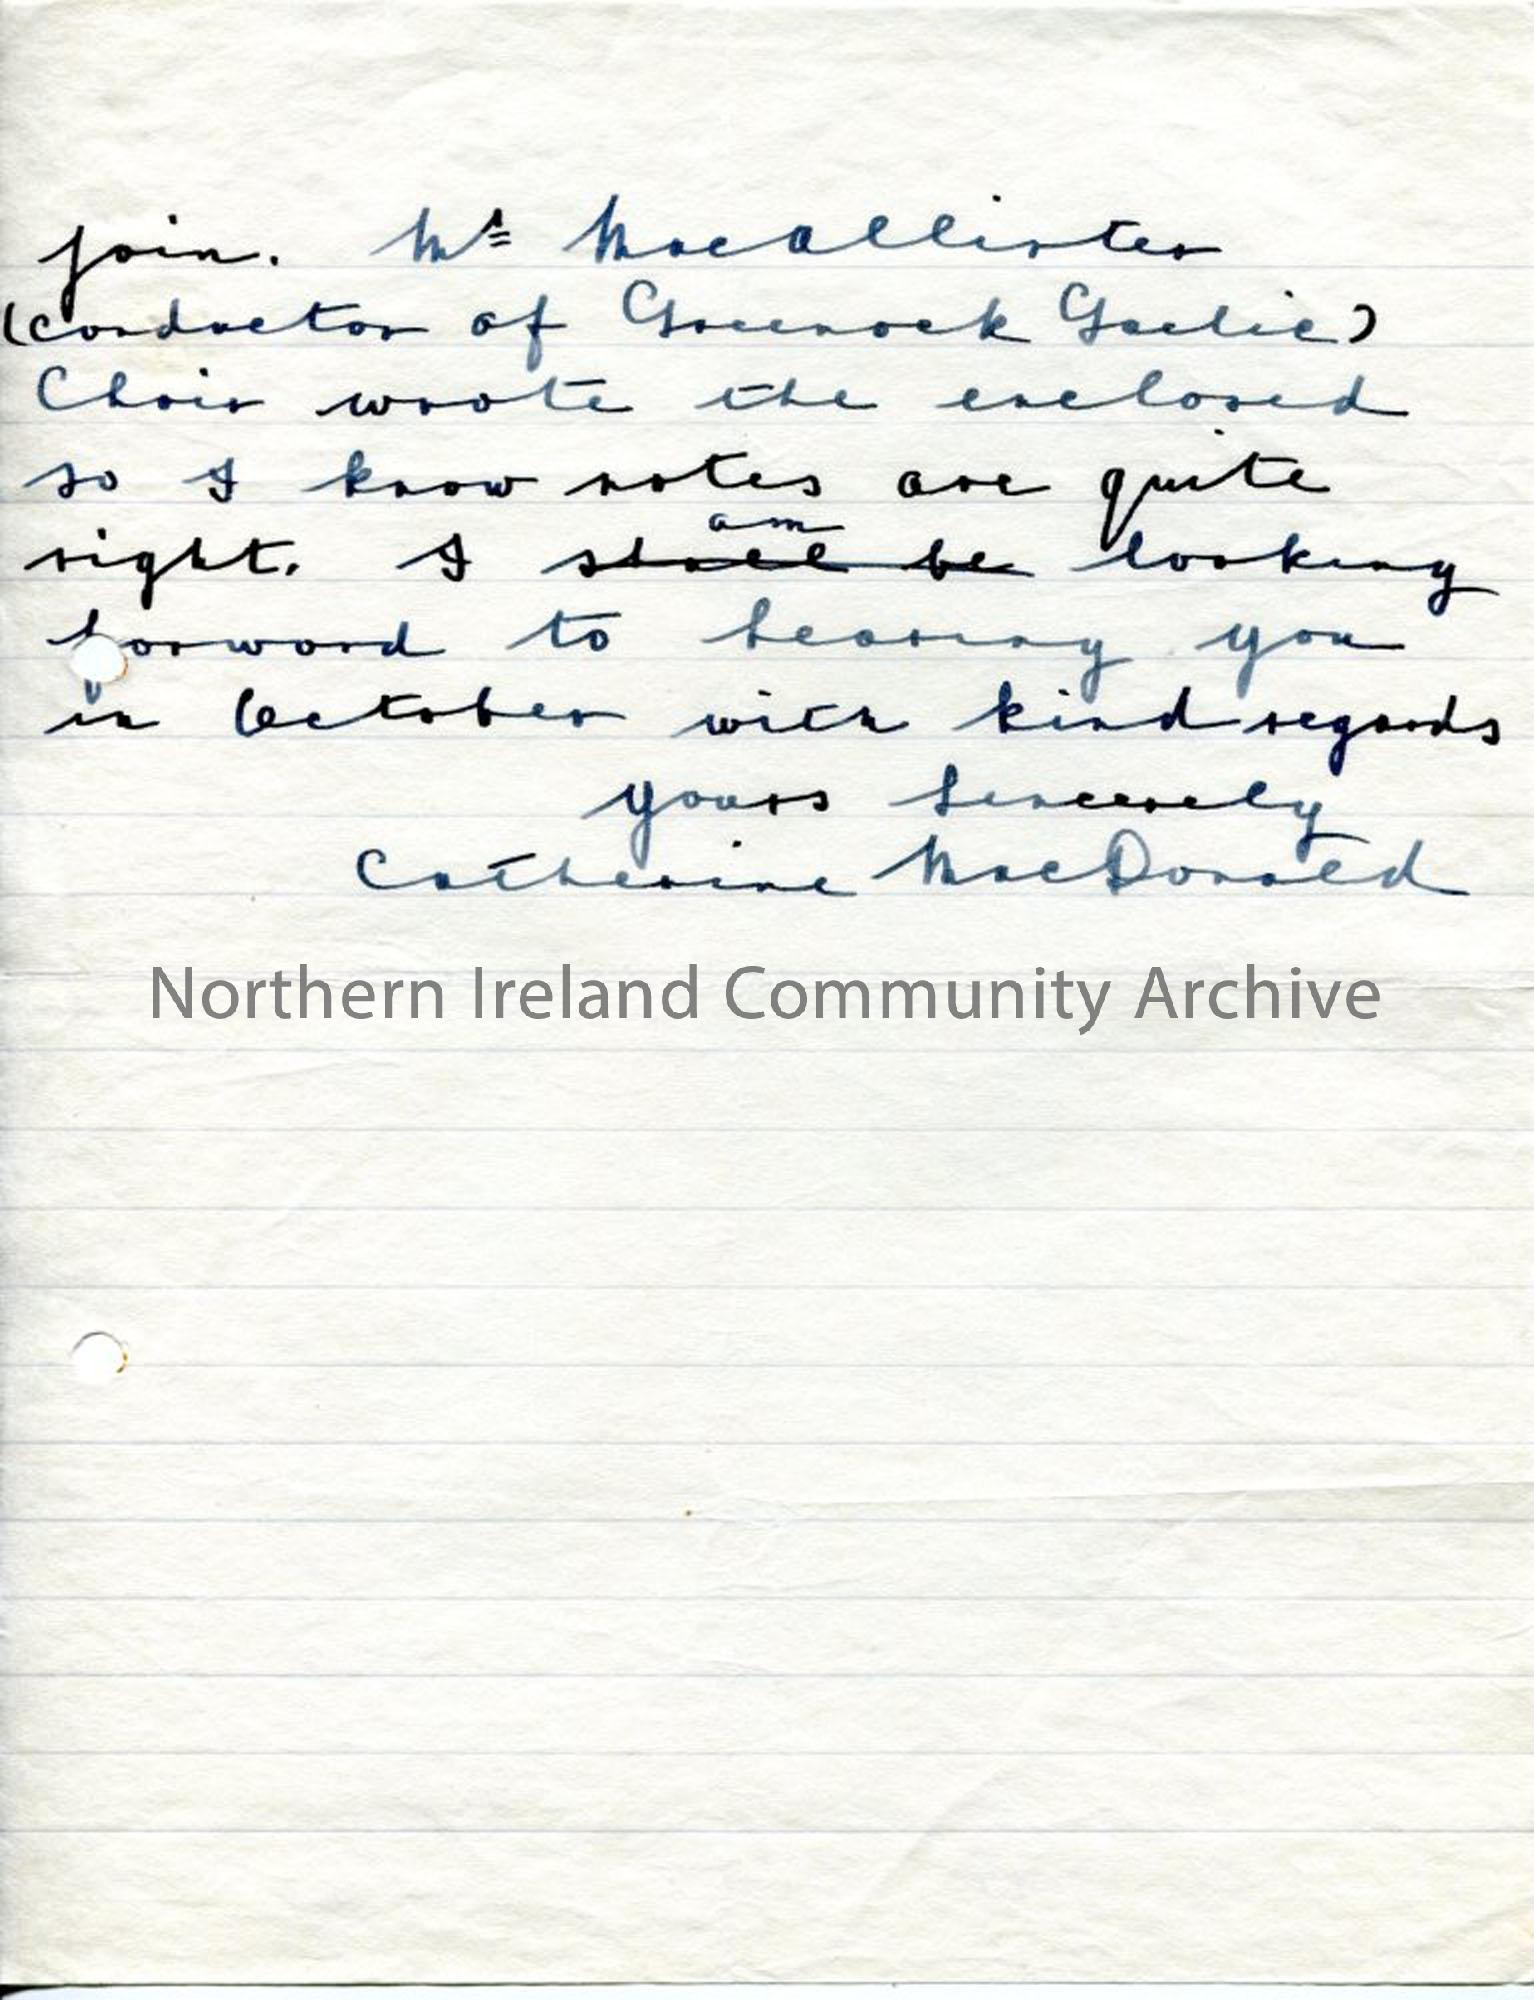 join. Mr MacAllister
(conductor of Greenock Gaelic)
Choir wrote the enclosed
so I know notes are quite
right. I shall be am looking
forward to hearing you
in October with kind regards
yours sincerely
Catherine MacDonald
Northern Ireland Community Archive